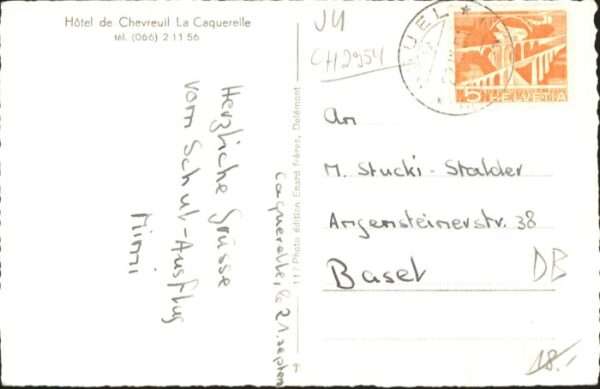 Hôtel de Chevreuil La Caquerelle
tél. (066) 2 11 56
Herzliche Grüsse
vom Schul-Ausflug
Mimi
Caquerelle, le 21. septem
117 Photo édition Enard frères, Delémont
JU
CH2954
UEL
5 HELVETIA
An
M. Stucki-Stalder
Angensteinerstr. 38
Basel
DB
18.-